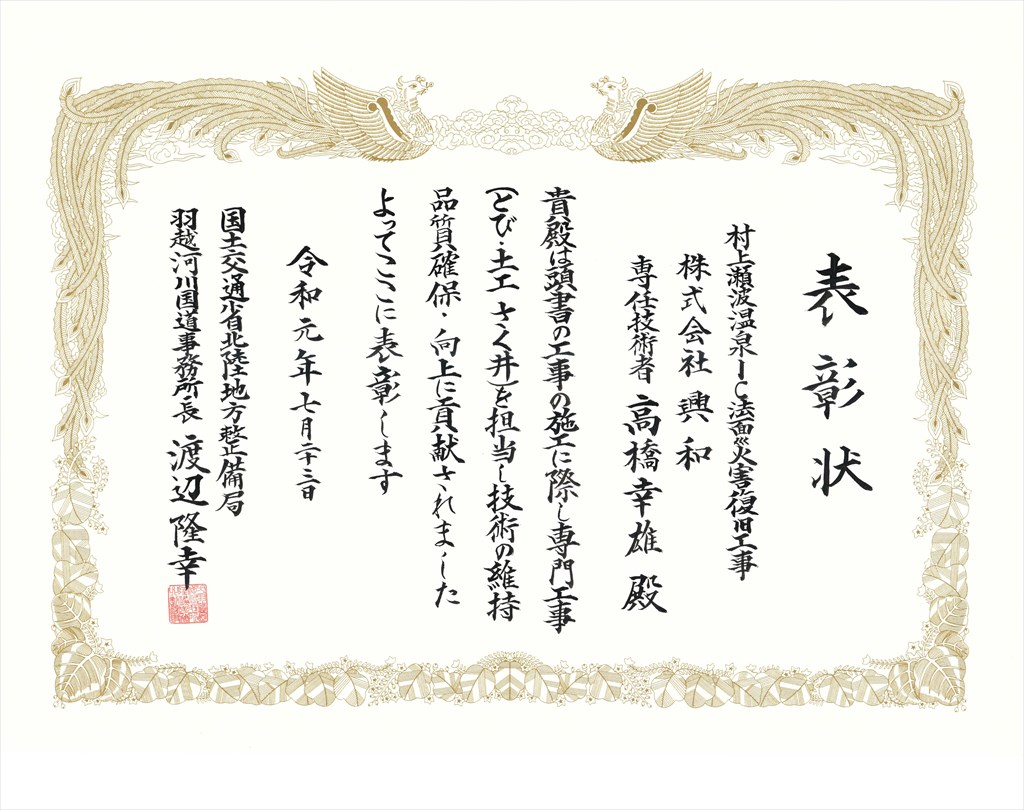 表彰状
村上瀬波温泉IC法面災害復旧工事
株式会社 興和
専任技術者 高橋幸雄 殿
貴殿は頭書の工事の施工に際し専門工事
(とび・土工 さく井)を担当し技術の維持
品質確保・向上に貢献されました
よってここに表彰します
令和元年七月二十三日
国土交通省北陸地方整備局
羽越河川国道事務所長 渡辺隆幸